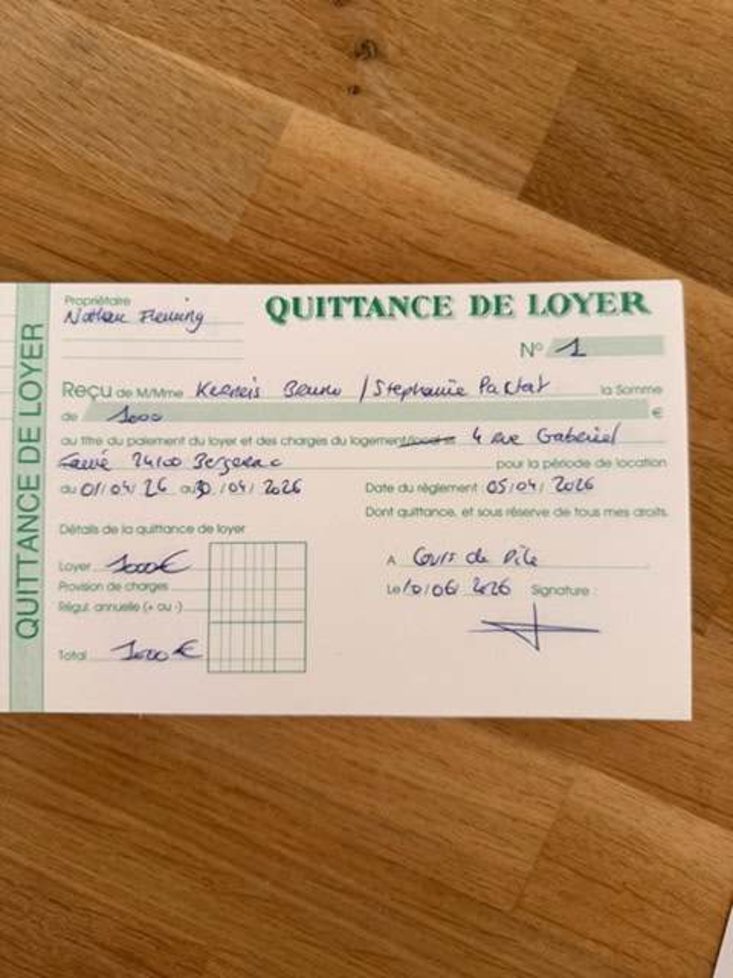 QUITTANCE DE LOYER
Propriétaire
Nathan Fleming
QUITTANCE DE LOYER
N° 1
Reçu de M/Mme Kerneis Bruno / Stephanie la Somme
de 1000 €
au titre du paiement du loyer et des charges du logement/local 4 rue Gabriel
24100 Bergerac pour la période de location
du 01/04/26 au 30/04/2026 Date du règlement 05/04/2026
Dont quittance, et sous réserve de tous mes droits.
Détails de la quittance de loyer
Loyer 1000€
A Cours de Pile
Provision de charges
Le 10/06/2026 Signature :
Régul. annuelle (+ ou -)
Total 1000€